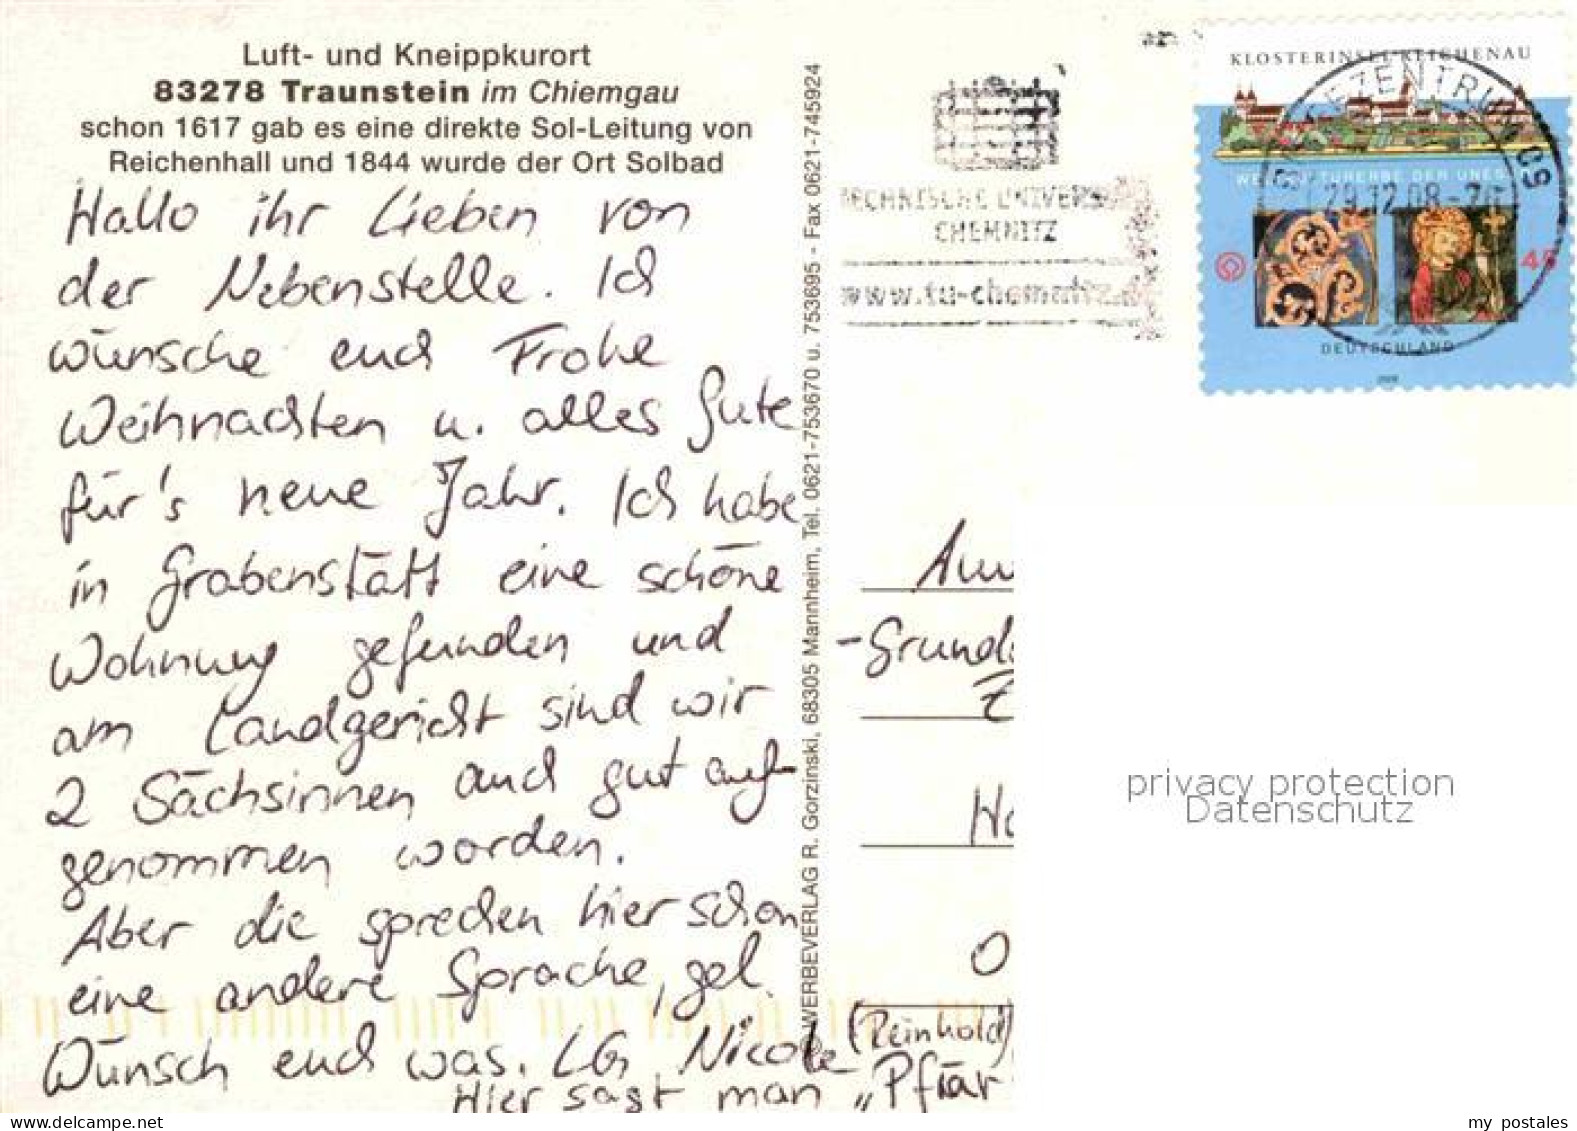 Luft- und Kneippkurort
83278 Traunstein im Chiemgau
schon 1617 gab es eine direkte Sol-Leitung von
Reichenhall und 1844 wurde der Ort Solbad
Hallo ihr Lieben von
der Nebenstelle. Ich
wünsche euch Frohe
Weihnachten u. alles Gute
für's neue Jahr. Ich habe
in Grabenstätt eine schöne
Wohnung gefunden und
am Landgericht sind wir
2 Sächsinnen auch gut auf-
genommen worden.
Aber die sprechen hier schon
eine andere Sprache, gel.
Wünsch euch was. LG Nicole (Reinhold)
Hier sagt man „Pfiat
WERBEVERLAG R. Gorzinski, 68305 Mannheim, Tel. 0621-753670 u. 753695 - Fax 0621-745924
TECHNISCHE UNIVERS
CHEMNITZ
www.tu-chemnitz.
KLOSTERINSEL REICHENAU
WELTKULTURERBE DER UNESCO
BRIEFZENTRUM 09
29.12.08
45
DEUTSCHLAND
-Grund
Ho
O
privacy protection
Datenschutz
my postales